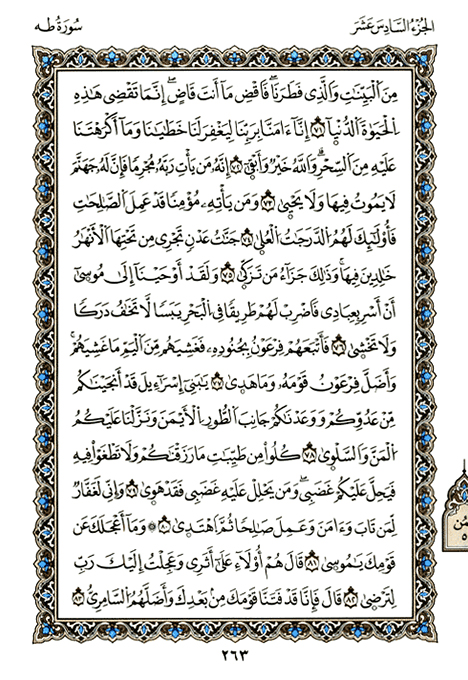 الجُزْءُ السَّادِسَ عَشَرَ
سُورَةُ طه
مِنَ ٱلْبَيِّنَٰتِ وَٱلَّذِى فَطَرَنَا ۖ فَٱقْضِ مَآ أَنتَ قَاضٍ ۖ إِنَّمَا تَقْضِى هَٰذِهِ
ٱلْحَيَوٰةَ ٱلدُّنْيَآ ٧١ إِنَّآ ءَامَنَّا بِرَبِّنَا لِيَغْفِرَ لَنَا خَطَٰيَٰنَا وَمَآ أَكْرَهْتَنَا
عَلَيْهِ مِنَ ٱلسِّحْرِ ۗ وَٱللَّهُ خَيْرٌ وَأَبْقَىٰٓ ٧٢ إِنَّهُۥ مَن يَأْتِ رَبَّهُۥ مُجْرِمًا فَإِنَّ لَهُۥ جَهَنَّمَ
لَا يَمُوتُ فِيهَا وَلَا يَحْيَىٰ ٧٣ وَمَن يَأْتِهِۦ مُؤْمِنًا قَدْ عَمِلَ ٱلصَّٰلِحَٰتِ
فَأُو۟لَٰٓئِكَ لَهُمُ ٱلدَّرَجَٰتُ ٱلْعُلَىٰ ٧٤ جَنَّٰتُ عَدْنٍ تَجْرِى مِن تَحْتِهَا ٱلْأَنْهَٰرُ
خَٰلِدِينَ فِيهَا ۚ وَذَٰلِكَ جَزَآءُ مَن تَزَكَّىٰ ٧٥ وَلَقَدْ أَوْحَيْنَآ إِلَىٰ مُوسَىٰٓ
أَنْ أَسْرِ بِعِبَادِى فَٱضْرِبْ لَهُمْ طَرِيقًا فِى ٱلْبَحْرِ يَبَسًا لَّا تَخَٰفُ دَرَكًا
وَلَا تَخْشَىٰ ٧٦ فَأَتْبَعَهُمْ فِرْعَوْنُ بِجُنُودِهِۦ فَغَشِيَهُم مِّنَ ٱلْيَمِّ مَا غَشِيَهُمْ
وَأَضَلَّ فِرْعَوْنُ قَوْمَهُۥ وَمَا هَدَىٰ ٧٧ يَٰبَنِىٓ إِسْرَٰٓءِيلَ قَدْ أَنجَيْنَٰكُم
مِّنْ عَدُوِّكُمْ وَوَعَدْنَٰكُمْ جَانِبَ ٱلطُّورِ ٱلْأَيْمَنَ وَنَزَّلْنَا عَلَيْكُمُ
ٱلْمَنَّ وَٱلسَّلْوَىٰ ٧٨ كُلُوا۟ مِن طَيِّبَٰتِ مَا رَزَقْنَٰكُمْ وَلَا تَطْغَوْا۟ فِيهِ
فَيَحِلَّ عَلَيْكُمْ غَضَبِى ۖ وَمَن يَحْلِلْ عَلَيْهِ غَضَبِى فَقَدْ هَوَىٰ ٧٩ وَإِنِّى لَغَفَّارٌ
لِّمَن تَابَ وَءَامَنَ وَعَمِلَ صَٰلِحًا ثُمَّ ٱهْتَدَىٰ ٨٠ ۞ وَمَآ أَعْجَلَكَ عَن
قَوْمِكَ يَٰمُوسَىٰ ٨١ قَالَ هُمْ أُو۟لَآءِ عَلَىٰٓ أَثَرِى وَعَجِلْتُ إِلَيْكَ رَبِّ
لِتَرْضَىٰ ٨٢ قَالَ فَإِنَّا قَدْ فَتَنَّا قَوْمَكَ مِنۢ بَعْدِكَ وَأَضَلَّهُمُ ٱلسَّامِرِىُّ ٨٣
٢٦٣